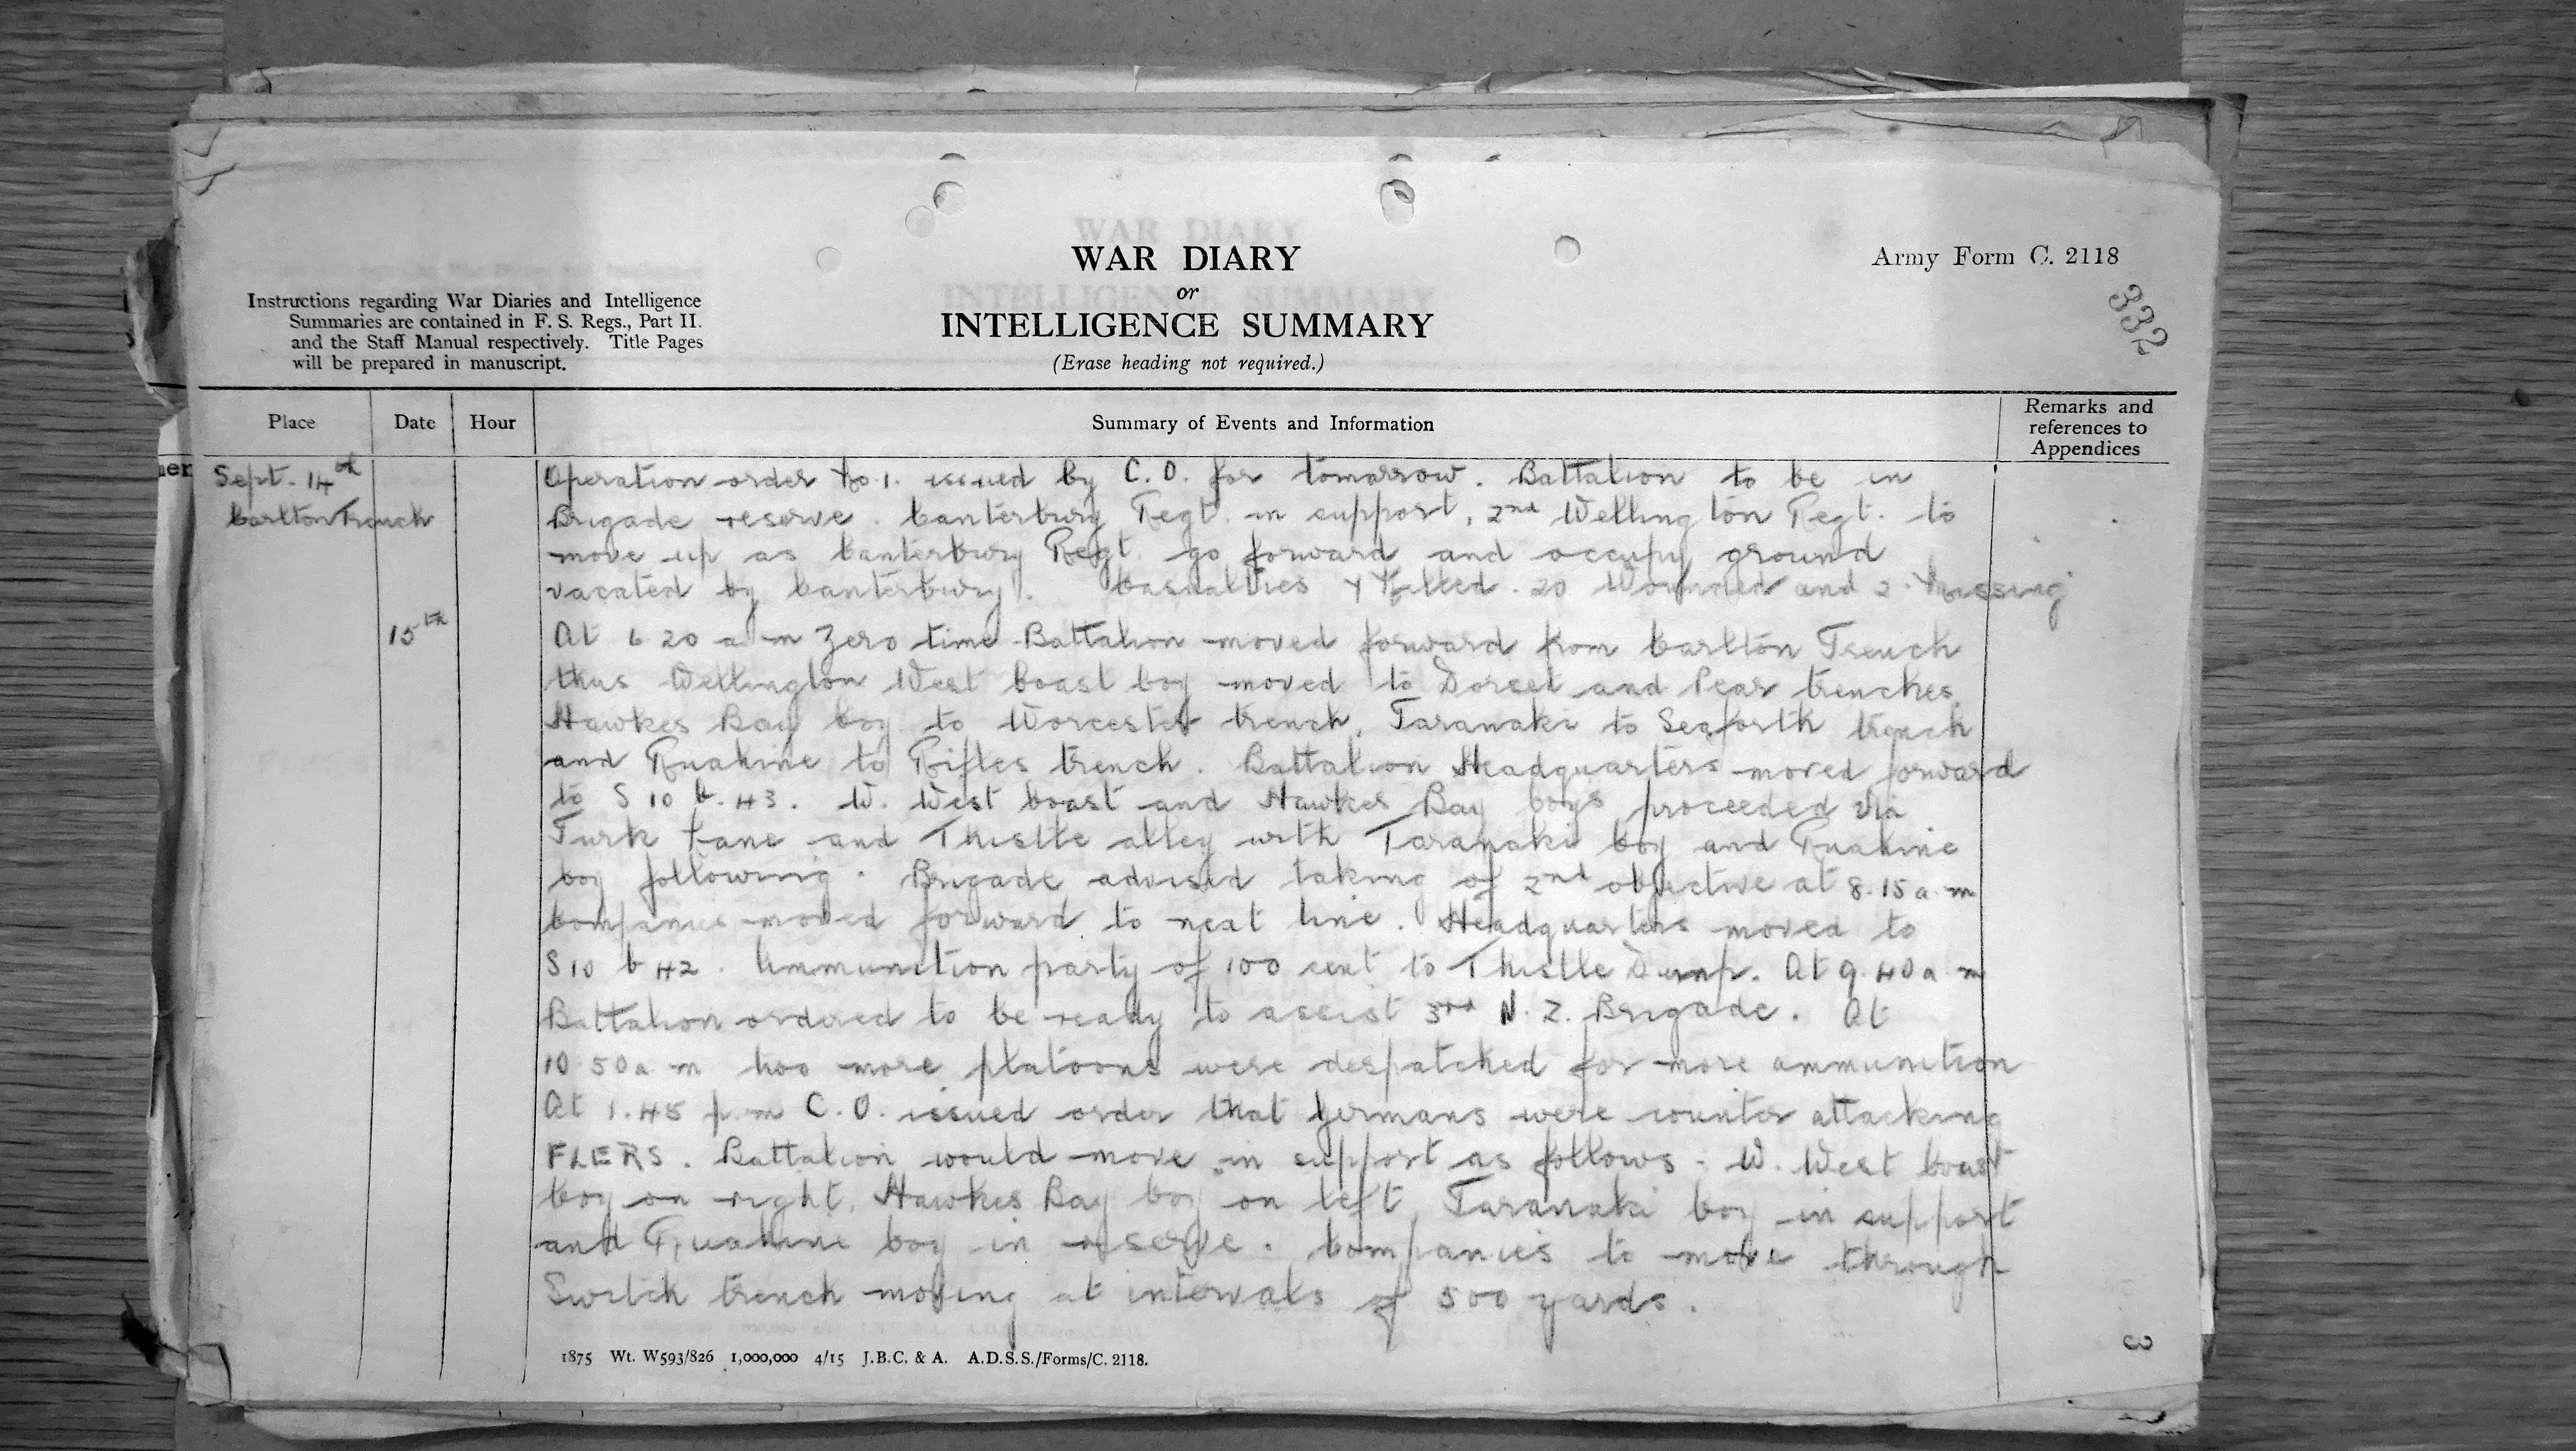 WAR DIARY
or
INTELLIGENCE SUMMARY
(Erase heading not required.)
Army Form C. 2118
332
Instructions regarding War Diaries and Intelligence
Summaries are contained in F. S. Regs., Part II.
and the Staff Manual respectively. Title Pages
will be prepared in manuscript.
Place Date Hour Summary of Events and Information Remarks and references to Appendices
Sept. 14th
Carlton Trench
Operation order No. 1. issued by C. O. for tomorrow. Battalion to be in
Brigade reserve. Canterbury Regt. in support, 2nd Wellington Regt. to
move up as Canterbury Regt. go forward and occupy ground
vacated by Canterbury. Casualties Killed. 20 Wounded and 2. Missing
15th
At 6 20 a m Zero time Battalion moved forward from Carlton Trench
thus Wellington West Coast Coy moved to Dorset and Pear trenches
Hawkes Bay Coy to Worcester trench, Taranaki to Seaforth trench
and Ruahine to Rifles trench. Battalion Headquarters moved forward
to S 10 b. 43. W. West Coast and Hawkes Bay Coys proceeded via
Turk Lane and Thistle alley with Taranaki Coy and Ruahine
Coy following. Brigade advised taking of 2nd objective at 8.15 a.m
Companies moved forward to next line. Headquarters moved to
S10 b 42. Ammunition party of 100 sent to Thistle Dump. At 9.40 a m
Battalion ordered to be ready to assist 3rd N. Z. Brigade. At
10.50 a m two more platoons were despatched for more ammunition
At 1.45 p.m C. O. issued order that Germans were counter attacking
FLERS. Battalion would move in support as follows - W. West Coast
Coy on right, Hawkes Bay Coy on left, Taranaki Coy in support
and Ruahine Coy in reserve. Companies to move through
Switch trench moving at intervals of 500 yards.
1875 Wt. W593/826 1,000,000 4/15 J.B.C. & A. A.D.S.S./Forms/C. 2118.
3